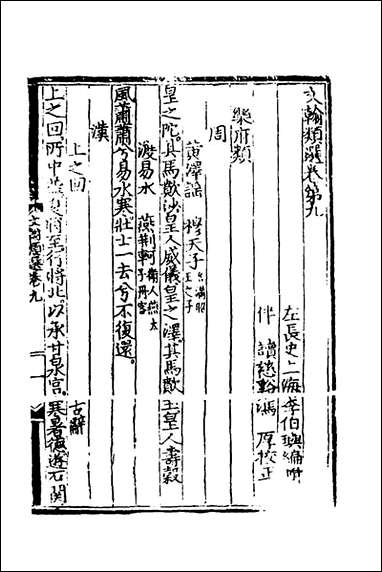 文翰類選卷第九
左長史上海李伯璵編輯
伴讀慈谿馮厚校正
樂府類
周
黃澤謡 穆天子 名滿昭王之子
皇之陀。其馬歕沙皇人威儀皇之澤。其馬歕玉皇人壽穀
渡易水 燕荊軻 衛人燕太子丹客
風蕭蕭兮易水寒壯士一去兮不復還。
漢
上之回 古辭
上之回所中益夏將至行將北以承甘泉宮。寒暑德遊石關
文翰類選卷九